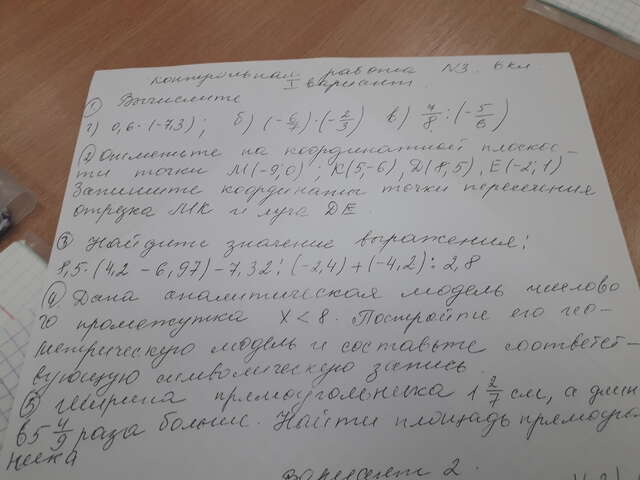 Контрольная работа N3. 6 кл.
I вариант
① Вычислите
а) 0,6·(-7,3); б) (-6/7)·(-2/3) в) 7/8:(-5/6)
② Отметьте на координатной плоскос-
ти точки М(-9;0); К(5;-6), D(8,5), Е(-2;1)
Запишите координаты точки пересечения
отрезка МК и луча DE.
③ Найдите значение выражения:
8,5·(4,2-6,97)-7,32:(-2,4)+(-4,2):2,8
④ Дана аналитическая модель числово
го промежутка х<8. Постройте его гео-
метрическую модель и составьте соответст-
вующую символическую запись.
⑤ Ширина прямоугольника 1 2/7 см, а длин
в 5 4/9 раза больше. Найти площадь прямоуголь-
ника
Вариант 2.